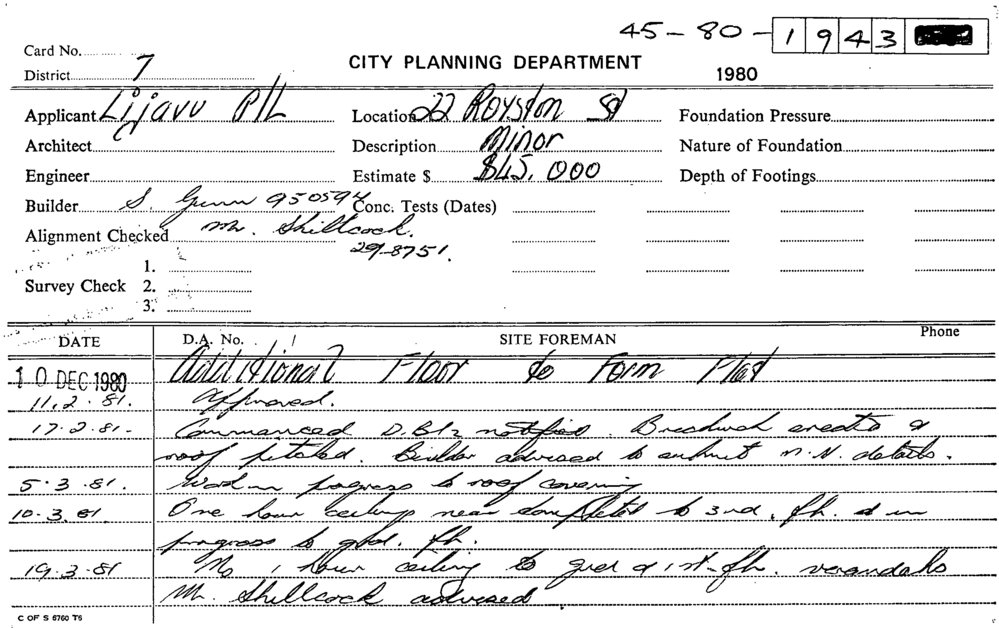 45-80-1943
Card No.
District 7
CITY PLANNING DEPARTMENT
1980
Applicant Lijavu P/L
Location 22 Royston St
Foundation Pressure
Architect
Description Minor
Nature of Foundation
Engineer
Estimate $ $45,000
Depth of Footings
Builder S. Gunn 950594
Conc. Tests (Dates)
Alignment Checked Mr. Shillcock.
29-8751.
1.
Survey Check 2.
3.
DATE D.A. No. SITE FOREMAN Phone
10 DEC 1980 Additional Floor to Form Flat
11.2.81. Approved.
17.2.81. Commenced D.B12 notified. Brickwork erected &
roof pitched. Builder advised to submit n.N. details.
5.3.81. Work in progress to roof covering
10.3.81 One hour ceilings near completed to 3rd. flr. & in
progress to grd. flr.
19.3.81 No 1 hour ceiling to grd & 1st flr. verandahs
Mr. Shillcock advised
C OF S 6760 T6